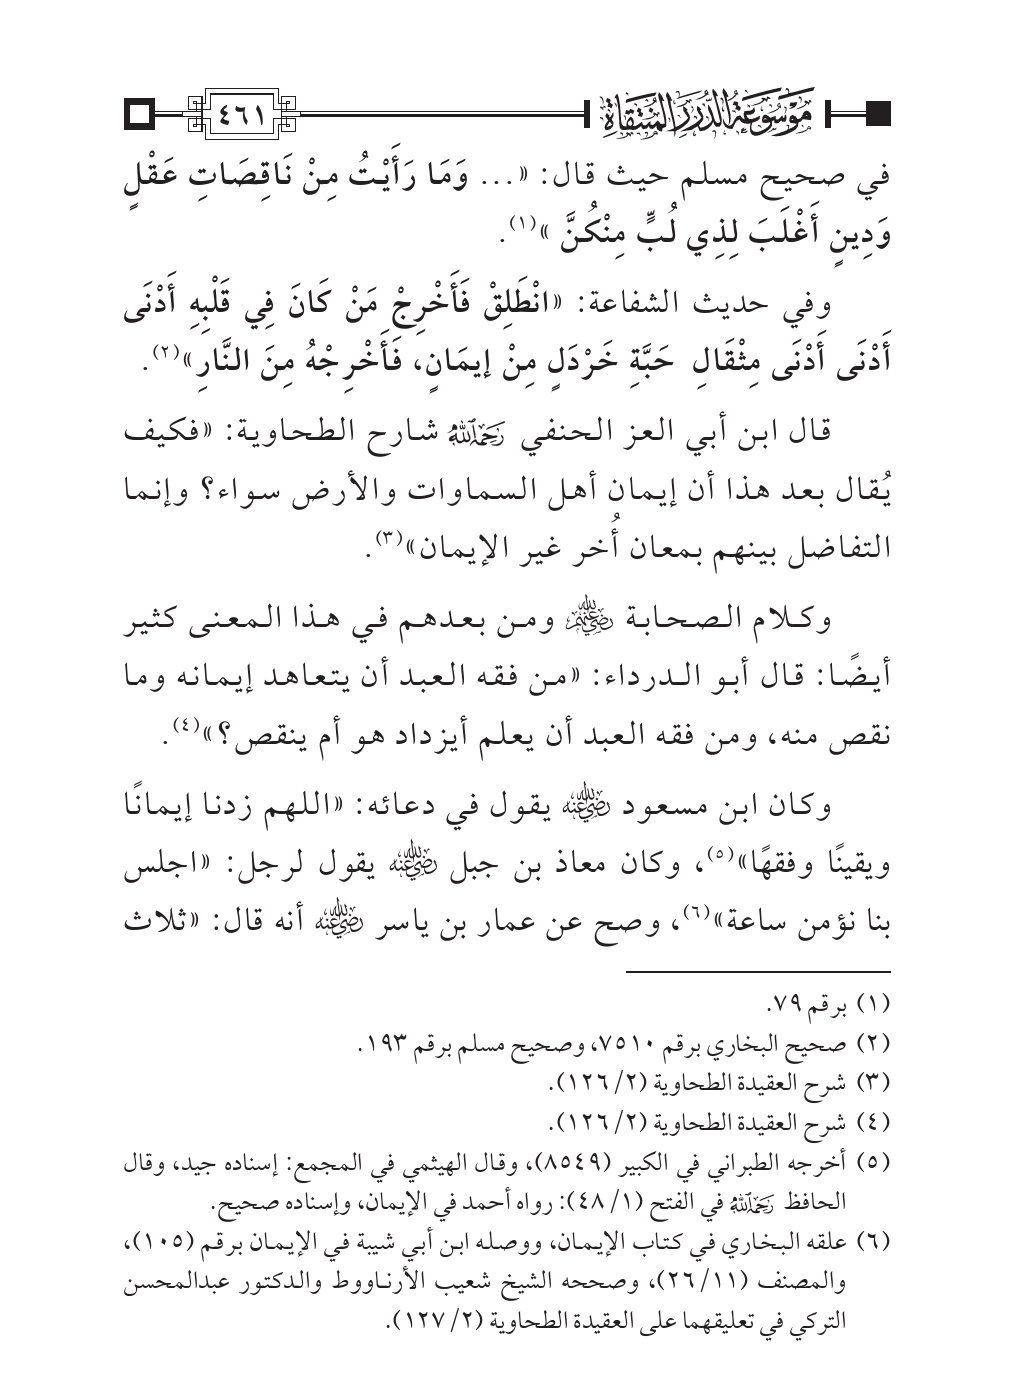 موسوعة الدرر المنتقاة ٤٦١
في صحيح مسلم حيث قال: «... وَمَا رَأَيْتُ مِنْ نَاقِصَاتِ عَقْلٍ
وَدِينٍ أَغْلَبَ لِذِي لُبٍّ مِنْكُنَّ»(١).
وفي حديث الشفاعة: «انْطَلِقْ فَأَخْرِجْ مَنْ كَانَ فِي قَلْبِهِ أَدْنَى
أَدْنَى أَدْنَى مِثْقَالِ حَبَّةِ خَرْدَلٍ مِنْ إيمَانٍ، فَأَخْرِجْهُ مِنَ النَّارِ»(٢).
قال ابن أبي العز الحنفي رحمه الله شارح الطحاوية: «فكيف
يُقال بعد هذا أن إيمان أهل السماوات والأرض سواء؟ وإنما
التفاضل بينهم بمعان أُخر غير الإيمان»(٣).
وكلام الصحابة رضي الله عنهم ومن بعدهم في هذا المعنى كثير
أيضًا: قال أبو الدرداء: «من فقه العبد أن يتعاهد إيمانه وما
نقص منه، ومن فقه العبد أن يعلم أيزداد هو أم ينقص؟»(٤).
وكان ابن مسعود رضي الله عنه يقول في دعائه: «اللهم زدنا إيمانًا
ويقينًا وفقهًا»(٥)، وكان معاذ بن جبل رضي الله عنه يقول لرجل: «اجلس
بنا نؤمن ساعة»(٦)، وصح عن عمار بن ياسر رضي الله عنه أنه قال: «ثلاث
(١) برقم ٧٩.
(٢) صحيح البخاري برقم ٧٥١٠، وصحيح مسلم برقم ١٩٣.
(٣) شرح العقيدة الطحاوية (٢/ ١٢٦).
(٤) شرح العقيدة الطحاوية (٢/ ١٢٦).
(٥) أخرجه الطبراني في الكبير (٨٥٤٩)، وقال الهيثمي في المجمع: إسناده جيد، وقال
الحافظ رحمه الله في الفتح (١/ ٤٨): رواه أحمد في الإيمان، وإسناده صحيح.
(٦) علقه البخاري في كتاب الإيمان، ووصله ابن أبي شيبة في الإيمان برقم (١٠٥)،
والمصنف (١١/ ٢٦)، وصححه الشيخ شعيب الأرناووط والدكتور عبدالمحسن
التركي في تعليقهما على العقيدة الطحاوية (٢/ ١٢٧).